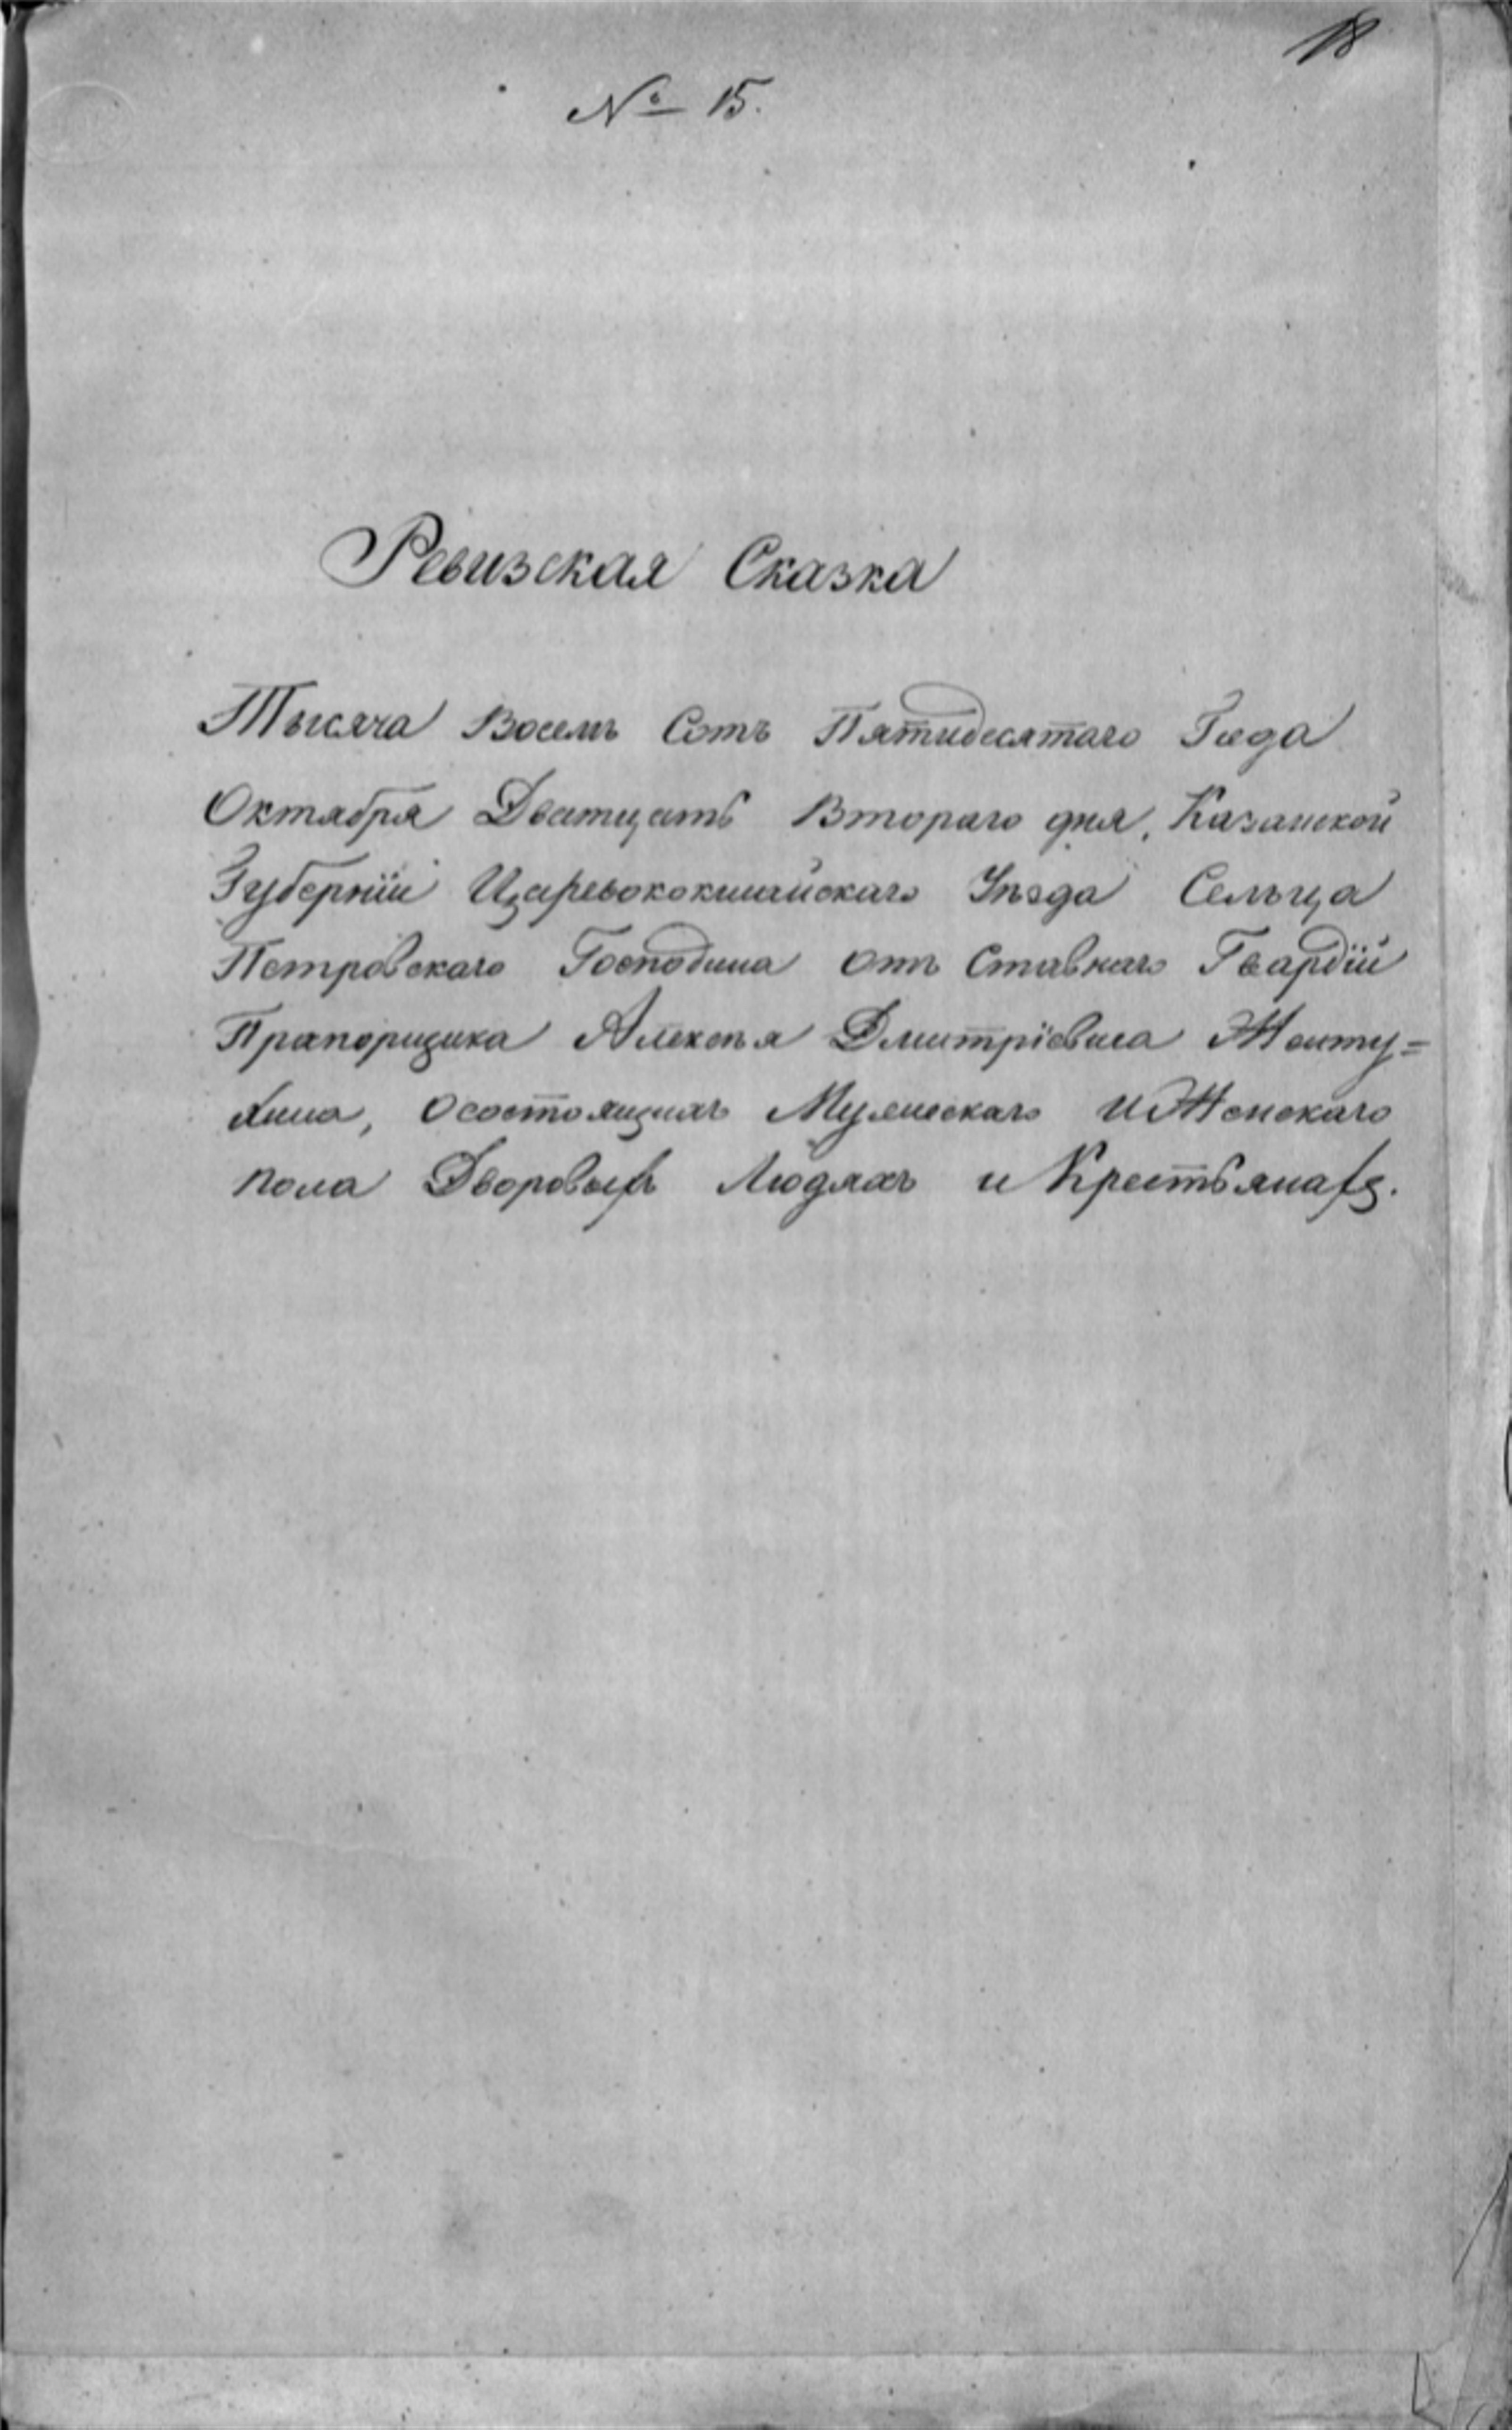 18
№ 15.
Ревизская Сказка
Тысяча Восемъ Сотъ Пятидесятаго Года
Октября Дватцать Втораго дня, Казанской
Губернїи Царевококшайскаго Уѣзда Сельца
Петровскаго Господина Отъ Ставнаго Гвардїи
Прапорщика Алексѣя Дмитрїевича Жемту=
хина, Осостоящихъ Мужескаго и Женскаго
пола Дворовыхъ Людяхъ и Крестьянахъ.